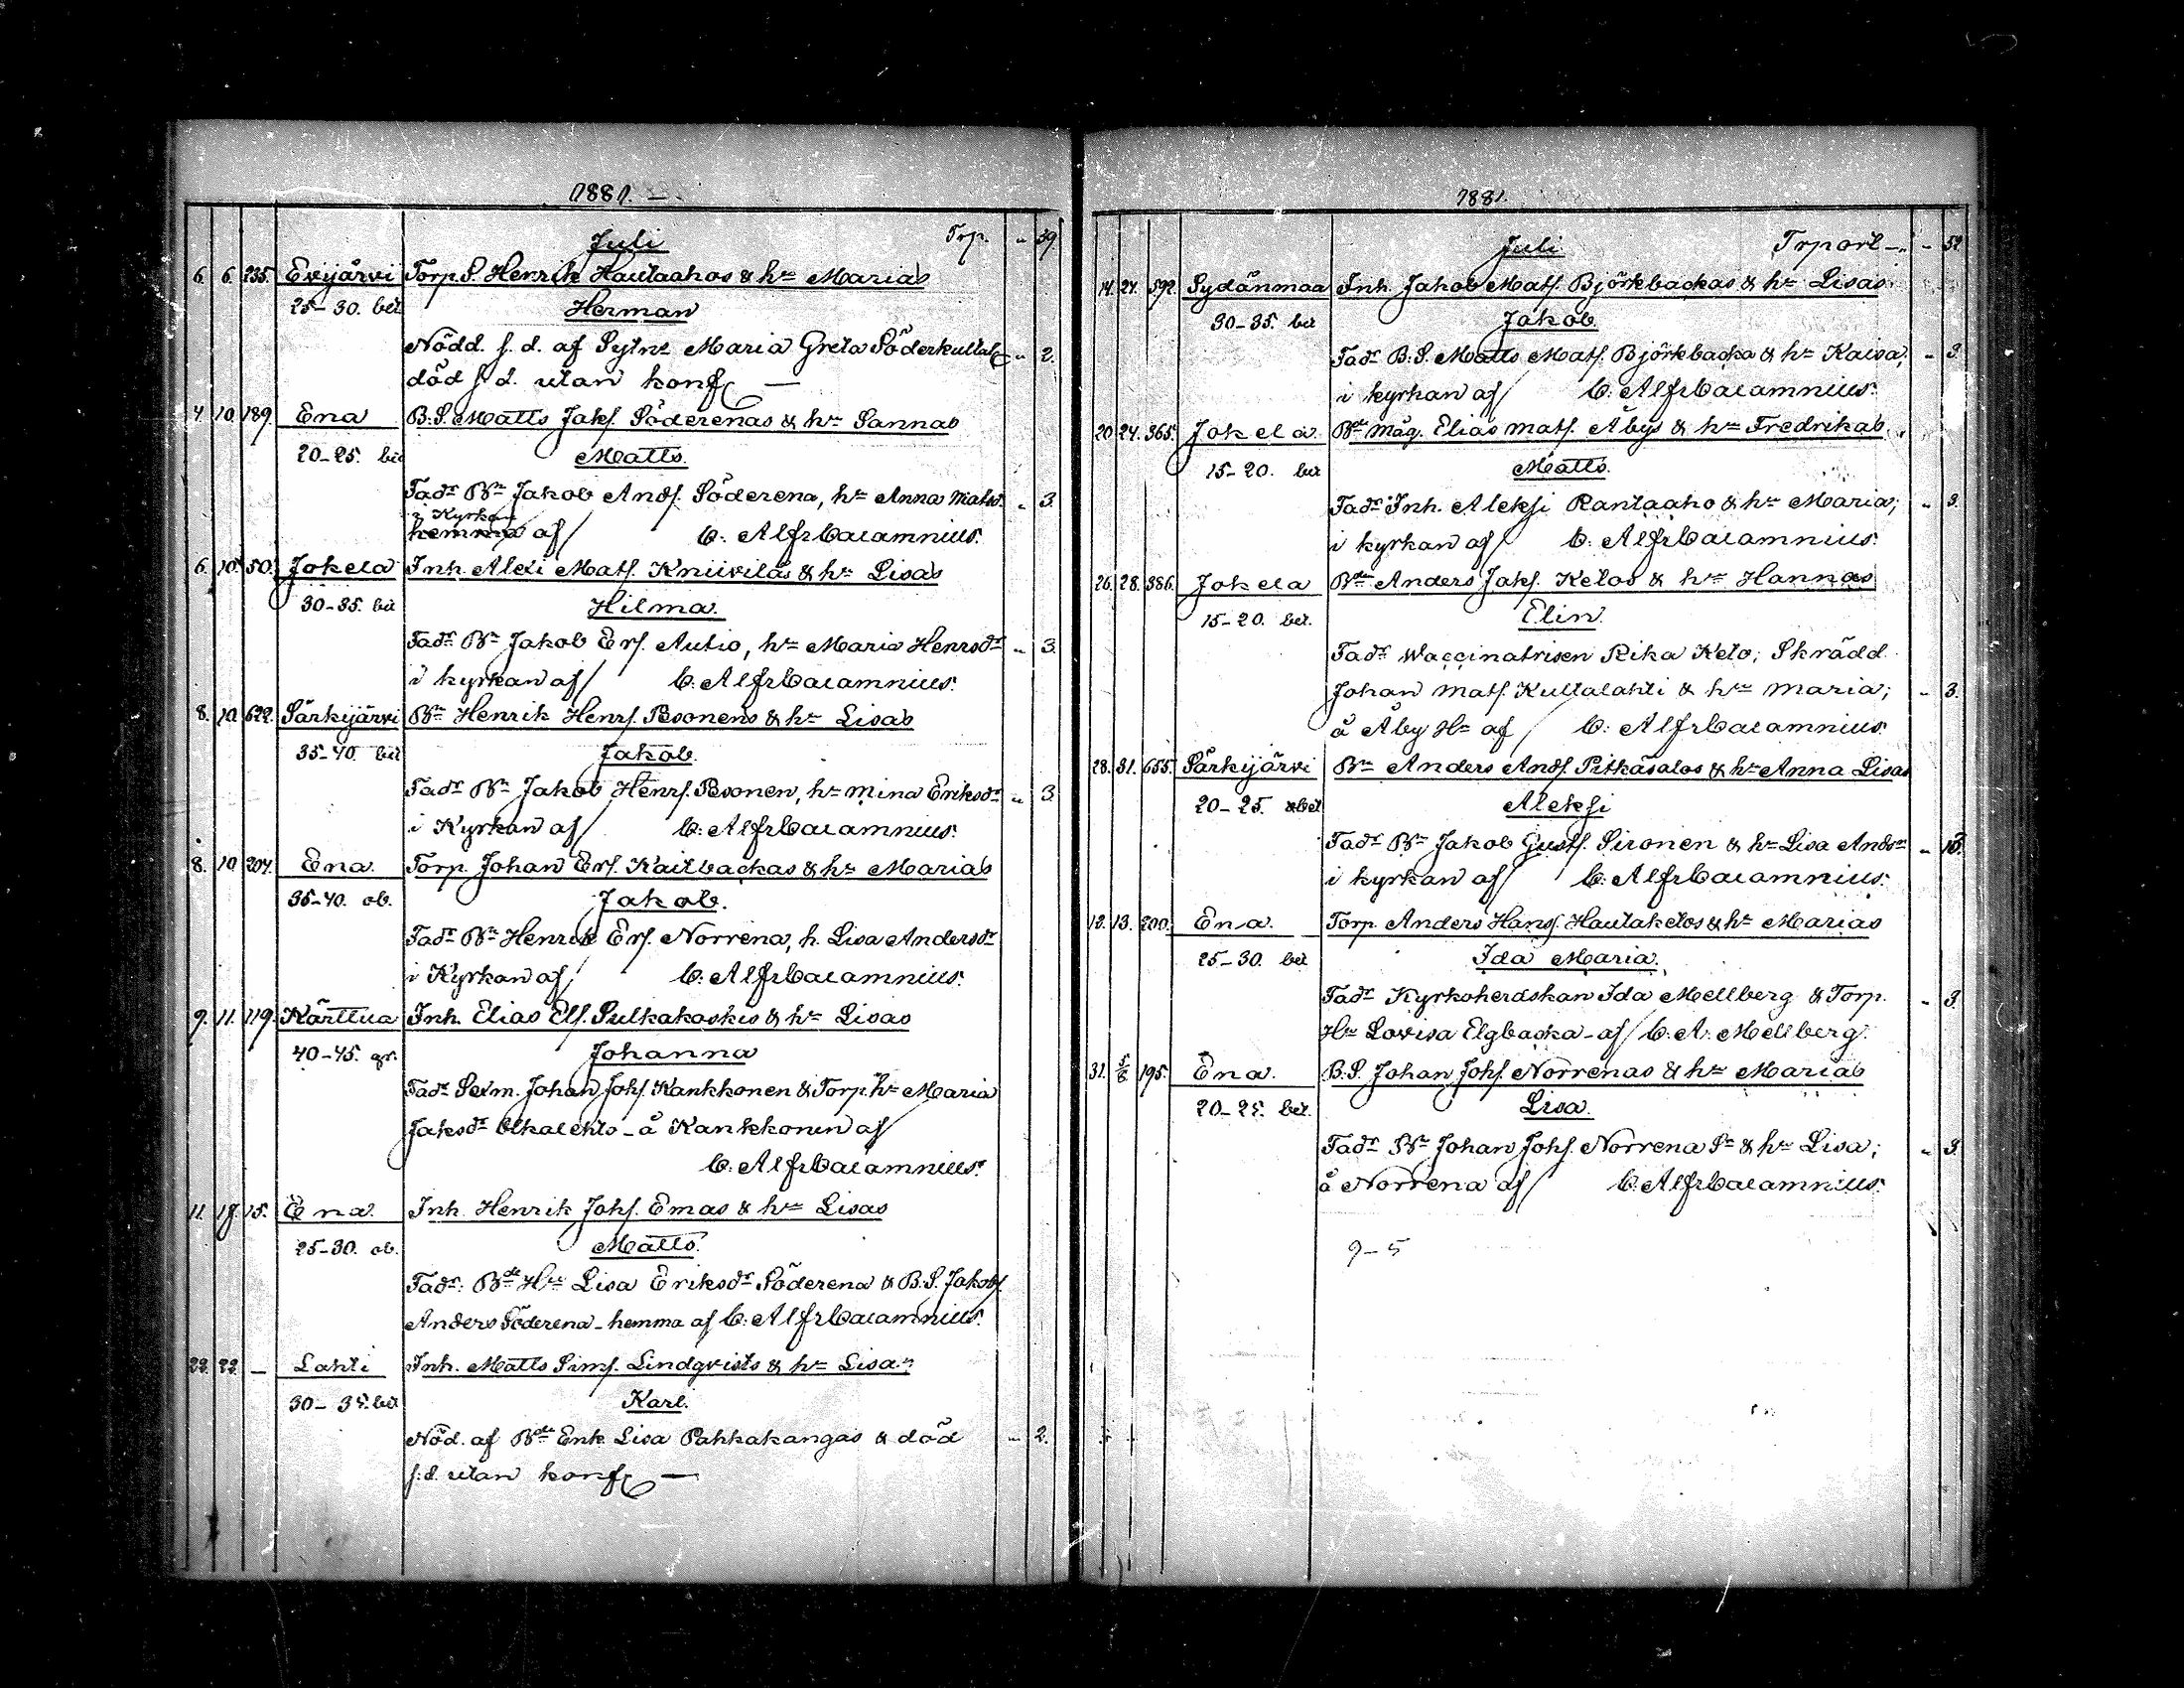 1881.
Juli Trp. " 39.
6. 6. 235. Evijärvi Torp.S. Henrik Hautaahos & hu Marias
25-30. bet Herman
Nödd. s. d. af Sytne Maria Greta Söderkulta " 2.
död s. d. utan konf
4. 10. 189. Ena B.S. Matts Jaks. Söderenas & hu Sannas
20-25. bet Matts.
Fadr Bn Jakob Ands. Söderena, hu Anna Matsd. " 3.
i Kyrkan
hemma af C: Alfr Calamnius.
6. 10. 50. Jokela Inh. Alexi Mats. Kniivilas & hu Lisas
30-35. bet Hilma.
Fadr Bn Jakob Ers. Autio, hu Maria Henrsdr " 3.
i kyrkan af C: Alfr Calamnius.
8. 10. 622. Särkijärvi Bn Henrik Henrs. Pesonens & hu Lisas
35-40. bet Jakob.
Fadr Bn Jakob Henrs. Pesonen, hu Mina Eriksdr " 3
i Kyrkan af C: Alfr Calamnius.
8. 10. 204. Ena. Torp. Johan Ers. Kailbackas & hu Marias
35-40. ob. Jakob.
Fadr Bn Henrik Ers. Norrena, h. Lisa Andersdr
i Kyrkan af C: Alfr Calamnius.
9. 11. 119. Kärttua Inh. Elias Els. Sulkakoskis & hu Lisas
40-45. gr. Johanna
Fadr Sexm. Johan Johs. Kankkonen & Torp. hu Maria
Jaksdr Ulkalehto - å Kankkonen af
C: Alfr Calamnius.
11. 17. 15. Ena. Inh. Henrik Johs. Emas & hu Lisas
25-30. ob. Matts.
Fadr: Bde Hu Lisa Eriksdr Söderena & B.S. Jakob
Anders Söderena - hemma af C: Alfr Calamnius.
22. 22. — Lahti Inh. Matts Sims. Lindqvists & hu Lisas
30-35. bet Karl.
Nöd. af Bde Enk. Lisa Pahkakangas & död " 2.
s. d. utan konf —
1881.
Juli Trport " 52.
14. 24. 592. Sydänmaa Inh. Jakob Mats. Björkbackas & hu Lisas
30-35. bet Jakob.
Fadr B.S. Matts Mats. Björkbacka & hu Kaisa, " 3.
i kyrkan af C: Alfr Calamnius.
20. 24. 365. Jokela. Bde Måg. Elias Mats. Åbys & hu Fredrikas
15-20. bet Matts.
Fadr Inh. Aleksi Rantaaho & hu Maria; " 3.
i kyrkan af C: Alfr Calamnius.
26. 28. 386. Jokela Bde Anders Jaks. Ketos & hu Hannas
15-20. bet. Elin.
Fadr Waccinatrisen Rika Keto; Skrädd.
Johan Mats. Kultalahti & hu Maria; " 3.
å Åby Hn af C: Alfr Calamnius.
28. 31. 655. Särkijärvi Bn Anders Ands. Pitkäsalos & hu Anna Lisas
20-25. bet Aleksi
Fadr Bn Jakob Gusts. Sironen & hu Lisa Andsdr "
i kyrkan af C: Alfr Calamnius.
12. 13. 200. Ena. Torp. Anders Hans. Hautaketos & hu Marias
25-30. bet Ida Maria.
Fadr Kyrkoherdskan Ida Mellberg & Torp. " 3.
Hu Lovisa Elgbacka - af C: A: Mellberg.
31. 5/8. 195. Ena. B.S. Johan Johs. Norrenas & hu Marias
20-25. bet. Lisa.
Fadr Bn Johan Johs. Norrena Sr & hu Lisa; " 3.
å Norrena af C: Alfr Calamnius.
9-5